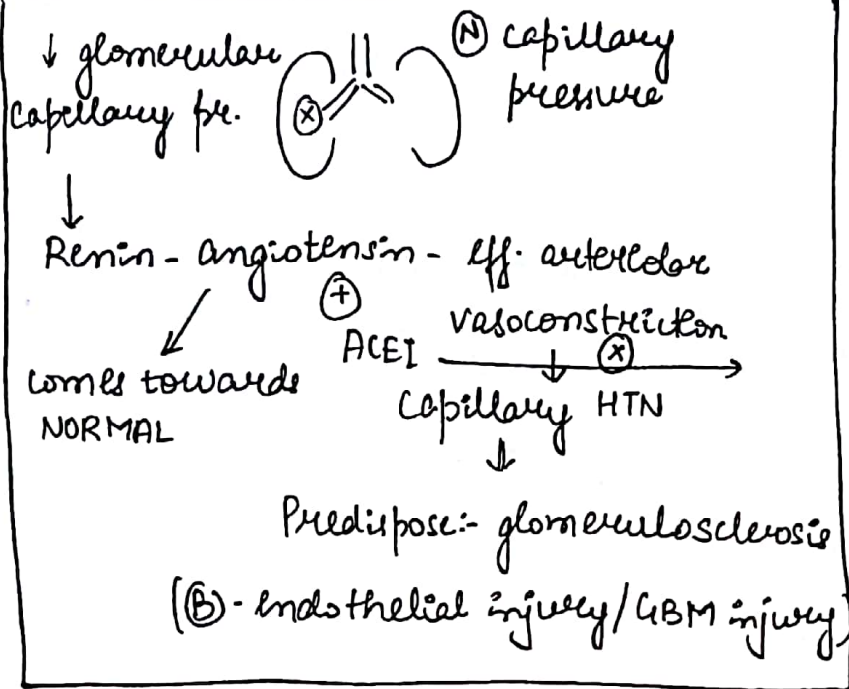 ↓ glomerular
capillary pr.
Ⓝ capillary
pressure
ⓧ
↓
Renin - angiotensin - eff. arteriolar
vasoconstriction
⊕
ACEI ⓧ →
↓
comes towards
NORMAL
Capillary HTN
↓
Predispose:- glomerulosclerosis
(Ⓑ - endothelial injury/GBM injury)